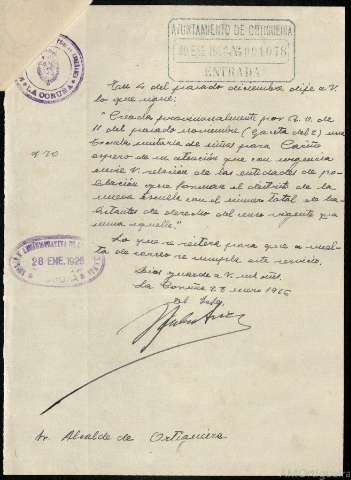 AYUNTAMIENTO DE ORTIGUEIRA
ENTRADA
LA CORUÑA
En 4 del pasado diciembre dije a V.
lo que sigue:
"Creada provisionalmente por R. O. de
11 del pasado noviembre (Gaceta del) una
Escuela unitaria de niñas para Cariño
espero de su atención que con urgencia
envíe V. relación de las entidades de po-
blación que forman el distrito de la
nueva Escuela con el número total de ha-
bitantes de derecho del censo vigente que
reuna aquella."
Lo que se reitera para que a vuel-
ta de correo se cumpla este servicio.
28 ENE. 1926
Dios guarde a V. m.s a.s
La Coruña enero 1926
El
Sr. Alcalde de Ortigueira